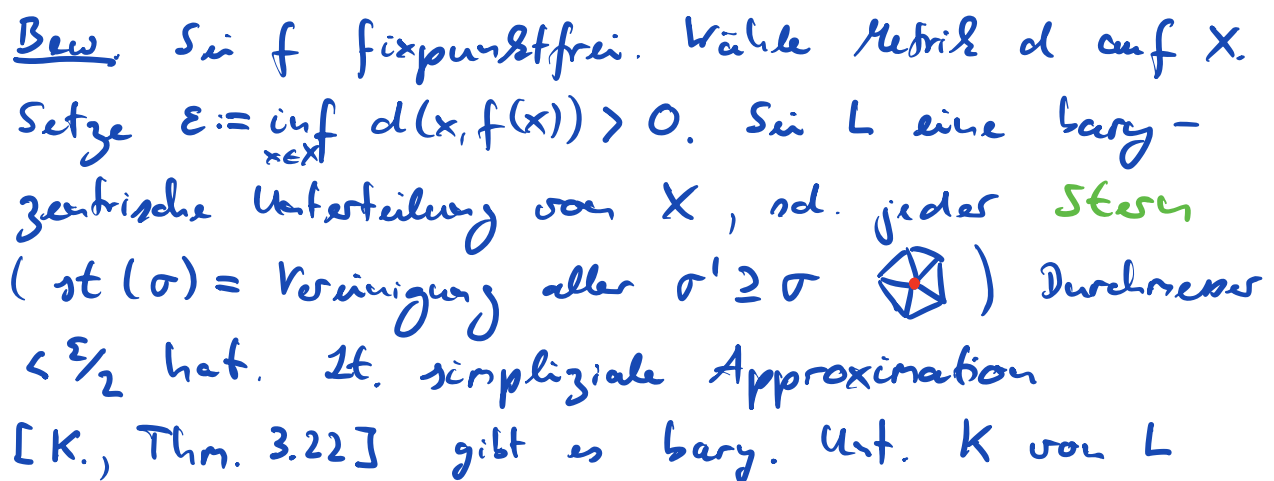 Bew. Sei f fixpunktfrei. Wähle Metrik d auf X.
Setze ε := inf_{x∈X} d(x, f(x)) > 0. Sei L eine bary-
zentrische Unterteilung von X, sd. jeder Stern
( st(σ) = Vereinigung aller σ' ⊇ σ ) Durchmesser
< ε/2 hat. Lt. simpliziale Approximation
[K., Thm. 3.22] gibt es bary. Unt. K von L